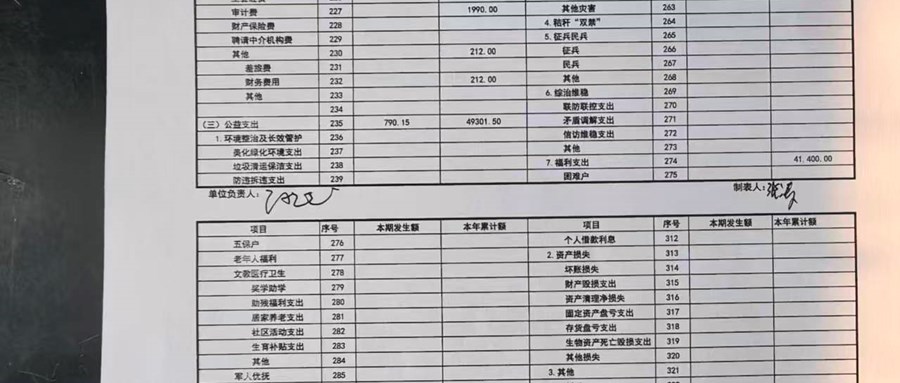 审计费 227 1990.00 其他灾害 263
财产保险费 228 4. 秸秆“双禁” 264
聘请中介机构费 229 5. 征兵民兵 265
其他 230 212.00 征兵 266
差旅费 231 民兵 267
财务费用 232 212.00 其他 268
其他 233 6. 综治维稳 269
234 联防联控支出 270
(三)公益支出 235 790.15 49301.50 矛盾调解支出 271
1. 环境整治及长效管护 236 信访维稳支出 272
美化绿化环境支出 237 其他 273
垃圾清运保洁支出 238 7. 福利支出 274 41,400.00
防违拆违支出 239 困难户 275
单位负责人: 制表人:
项目 序号 本期发生额 本年累计额 项目 序号 本期发生额 本年累计额
五保户 276 个人借款利息 312
老年人福利 277 2. 资产损失 313
文教医疗卫生 278 坏账损失 314
奖学助学 279 财产毁损支出 315
助残福利支出 280 资产清理净损失 316
居家养老支出 281 固定资产盘亏支出 317
社区活动支出 282 存货盘亏支出 318
生育补贴支出 283 生物资产死亡毁损支出 319
其他 284 其他损失 320
军人优抚 285 3. 其他 321